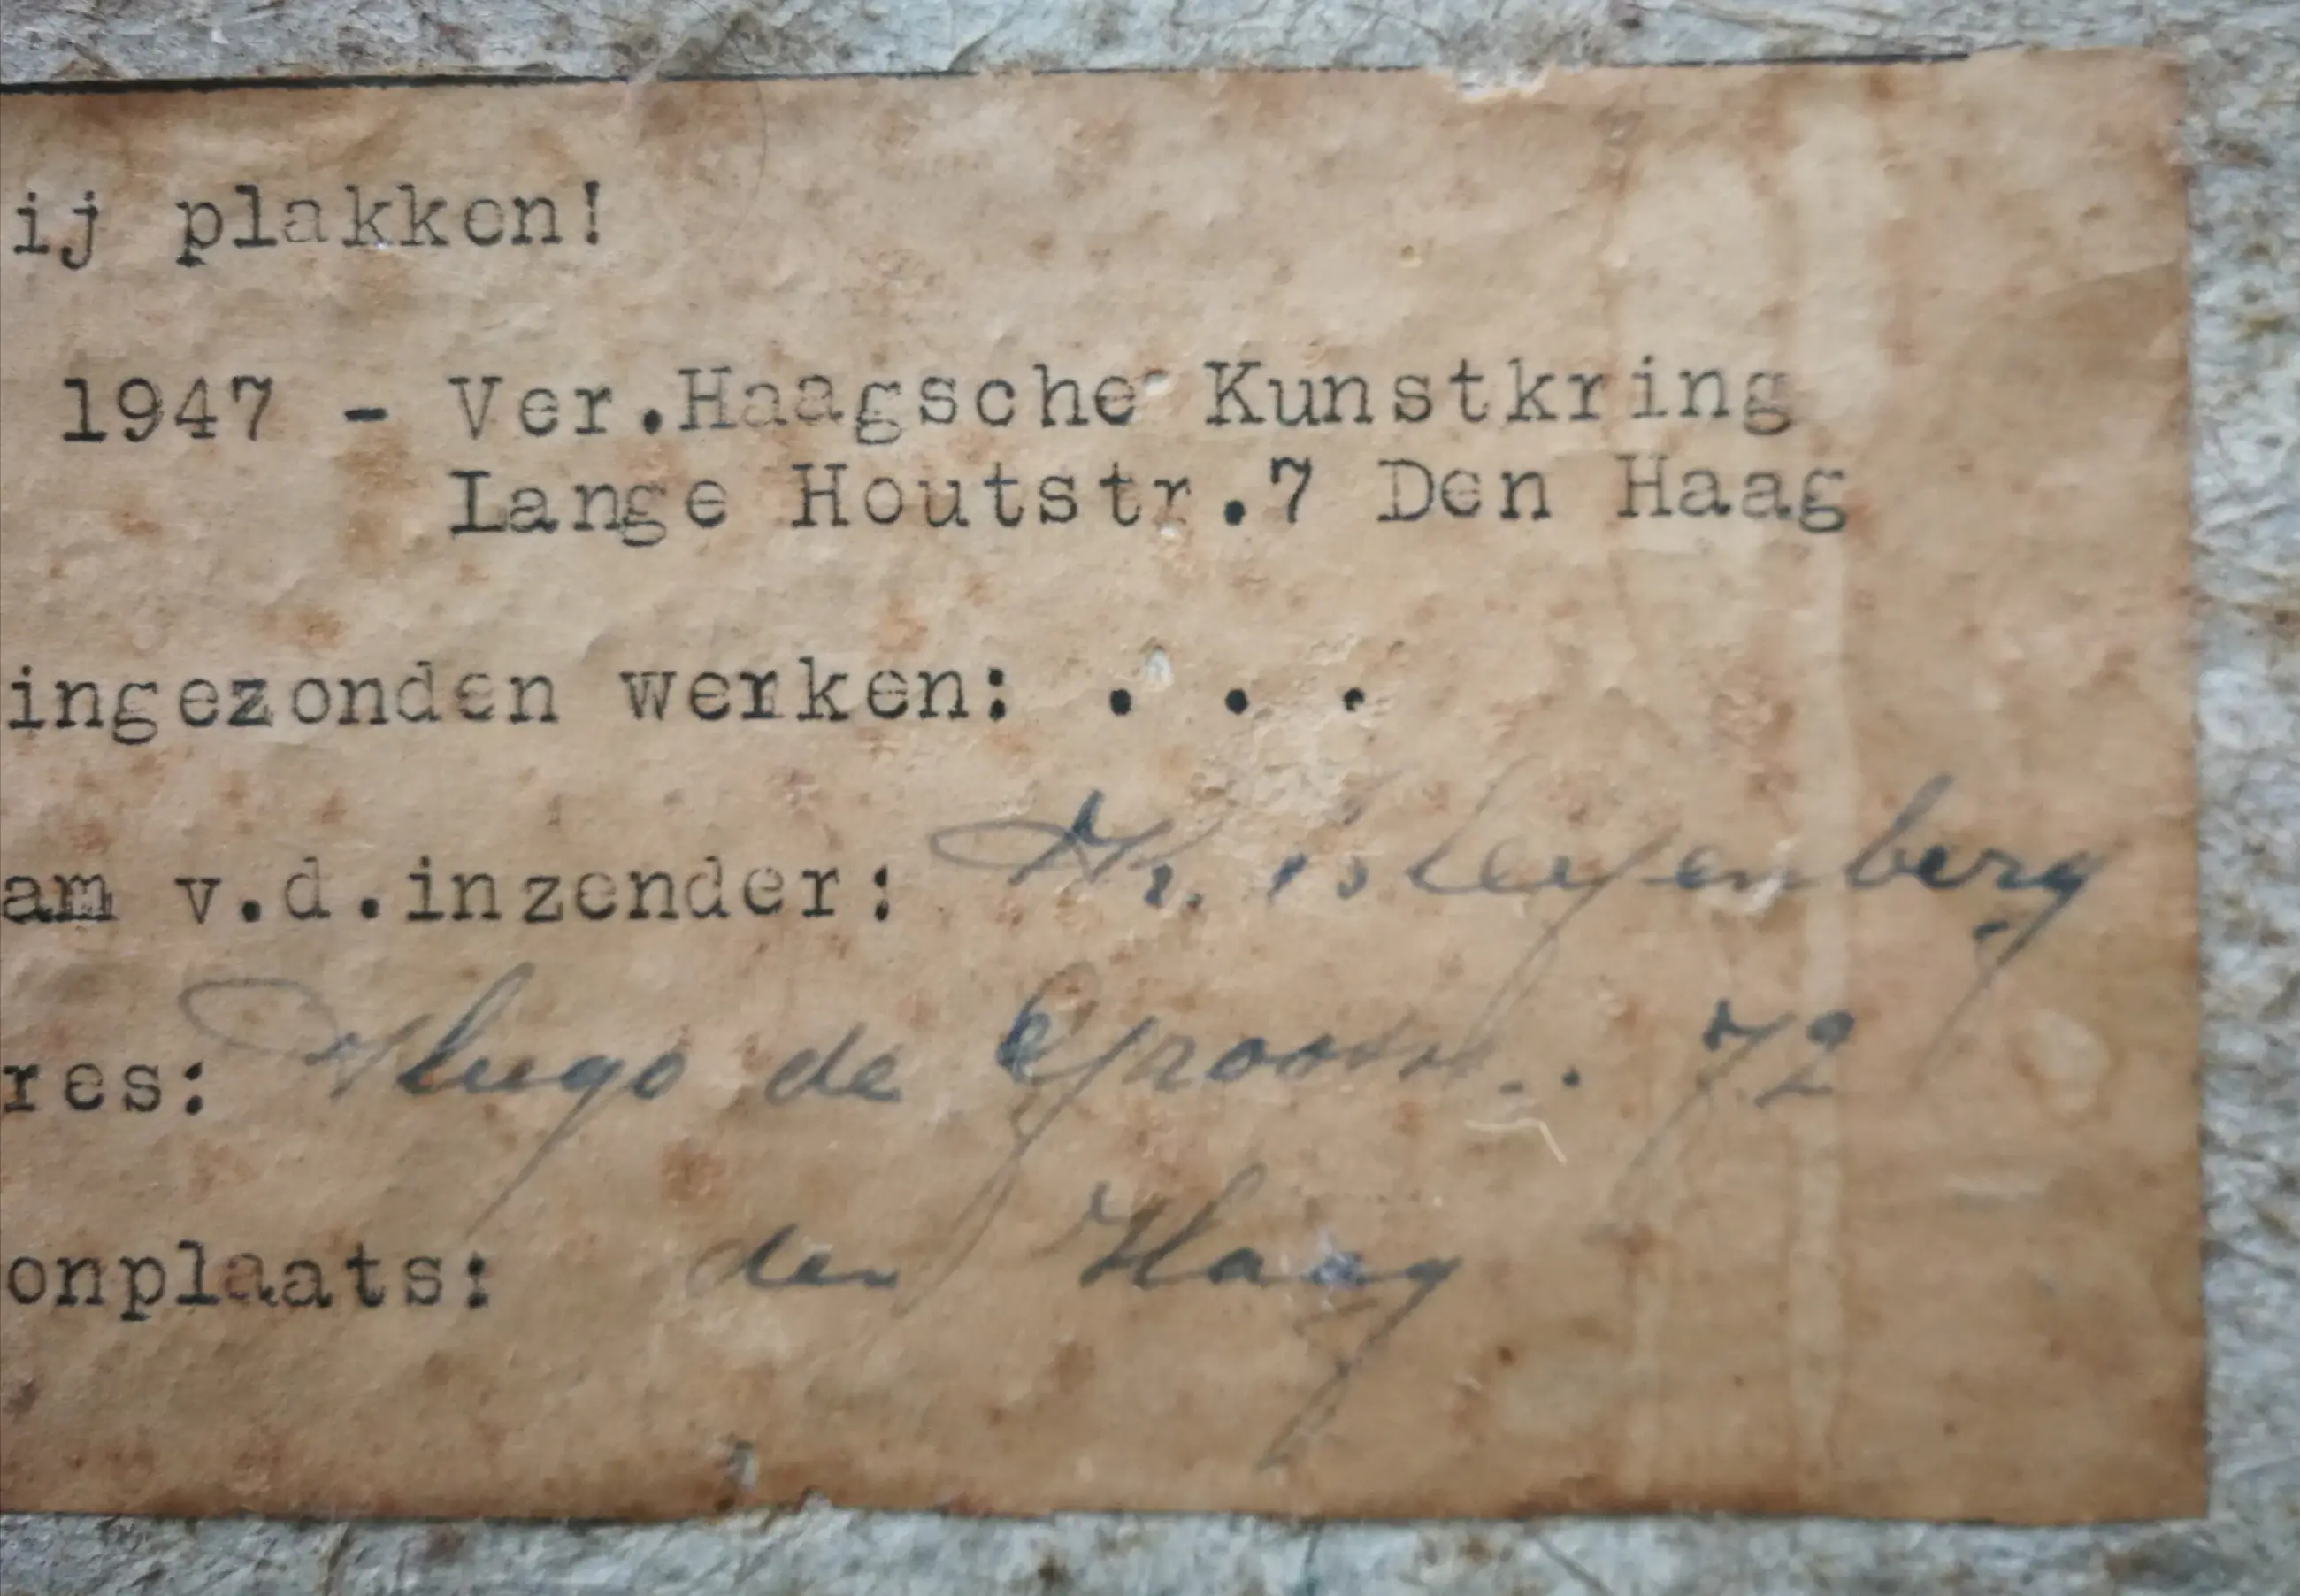 ij plakken!
1947 - Ver.Haagsche Kunstkring
Lange Houtstr.7 Den Haag
ingezonden werken: . . .
am v.d.inzender:
res: Hugo de Groot 72
onplaats: den Haag